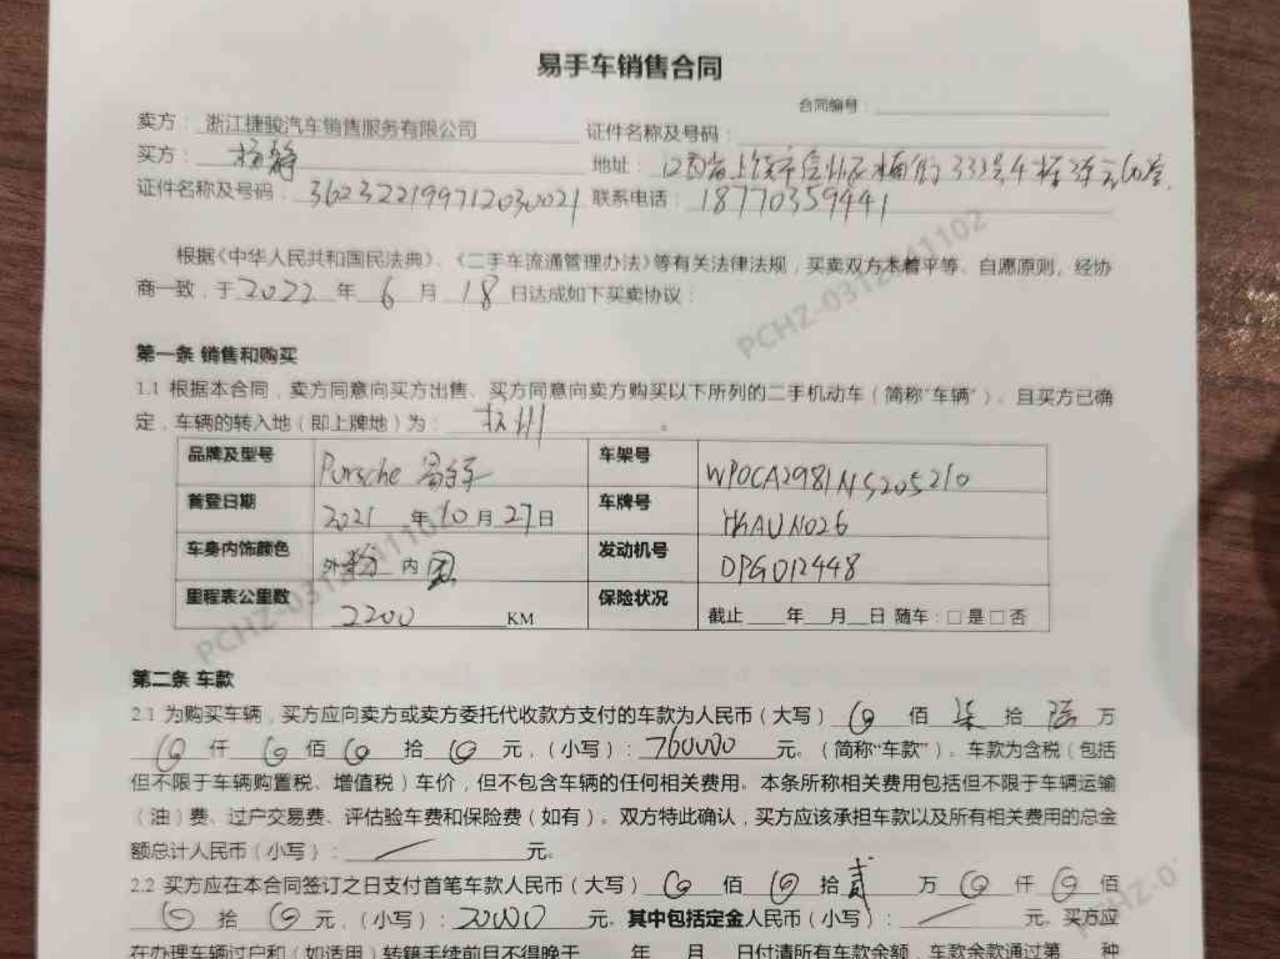 易手车销售合同
合同编号：
卖方： 浙江捷骏汽车销售服务有限公司 证件名称及号码：
买方： 杨静 地址： 江西省上饶市信州区 333号4栋3单元
证件名称及号码 362322199712030021 联系电话： 18770359441
根据《中华人民共和国民法典》、《二手车流通管理办法》等有关法律法规，买卖双方本着平等、自愿原则，经协
商一致，于 2022 年 6 月 18 日达成如下买卖协议：
PCHZ-0312141102
第一条 销售和购买
1.1 根据本合同，卖方同意向买方出售、买方同意向卖方购买以下所列的二手机动车（简称“车辆”）。且买方已确
定，车辆的转入地（即上牌地）为： 杭州
品牌及型号 Porsche 车架号 WP0CA2981NS205210
首登日期 2021 年 10 月 27 日 车牌号 AUN026
车身内饰颜色 外 粉 内 黑 发动机号 DPG012448
里程表公里数 2200 KM 保险状况 截止 年 月 日 随车：□是□否
第二条 车款
2.1 为购买车辆，买方应向卖方或卖方委托代收款方支付的车款为人民币（大写） 佰 柒 拾 陆 万
仟 佰 拾 元，（小写）： 760000 元。（简称“车款”）。车款为含税（包括
但不限于车辆购置税、增值税）车价，但不包含车辆的任何相关费用。本条所称相关费用包括但不限于车辆运输
（油）费、过户交易费、评估验车费和保险费（如有）。双方特此确认，买方应该承担车款以及所有相关费用的总金
额总计人民币（小写）： 元。
2.2 买方应在本合同签订之日支付首笔车款人民币（大写） 佰 拾 贰 万 仟 佰
拾 元，（小写）： 20000 元。其中包括定金人民币（小写）： 元。买方应
在办理车辆过户和（如适用）转籍手续前且不得晚于 年 月 日付清所有车款余额，车款余款通过第 种